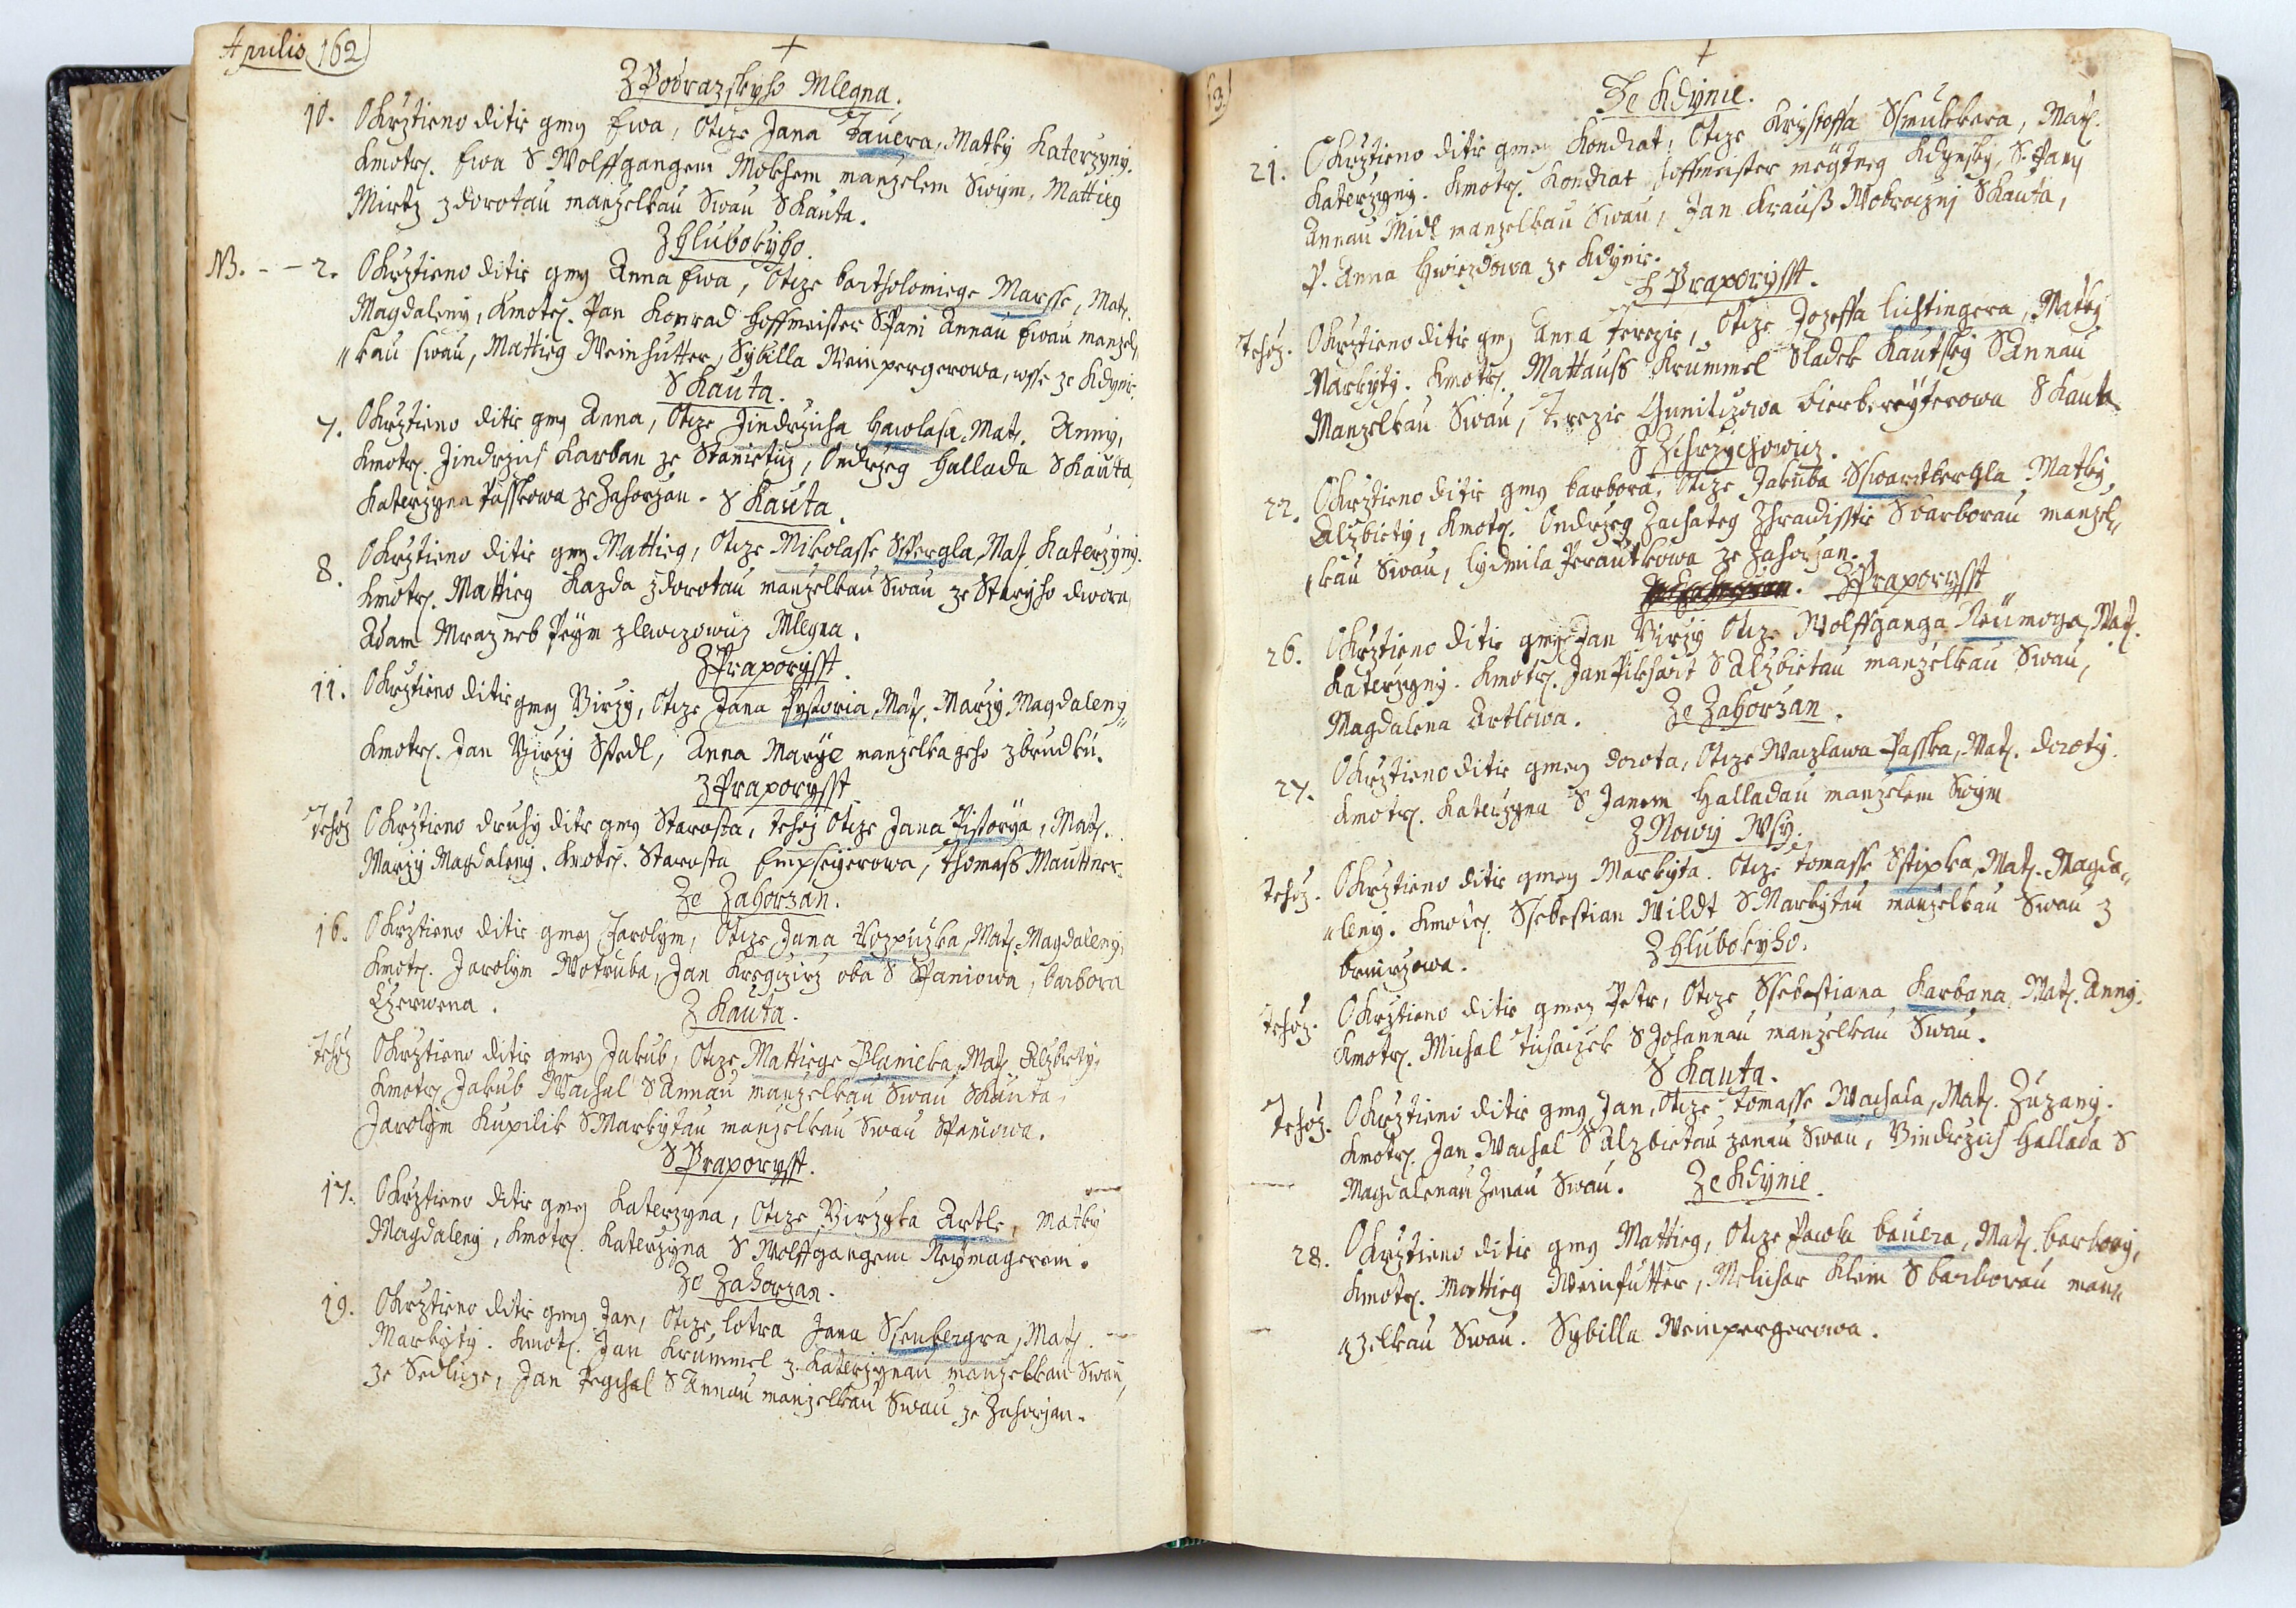 Aprilis 162
Z Podrazskyho Mlegna.
10. Okrztieno ditie gmeg Ewa, Otcze Jana Jauera, Matky Katerzyny.
Kmotrz. Ewa S Wolffgangem Mokhem manzelem Swym, Mattieg
Mirtz z dorotau manzelkau Swau S Kauta.
Z Hlubokyho.
NB. - - 2. Okrztieno ditie gmeg Anna Ewa, Otcze bartholomiege Marsse, Matk.
Magdaleny, Kmotrz. Pan Konrad Hoffmeister S Pani Annau Ewau manzel„
„kau swau, Mattieg Weinhutter, Sybilla Weinpergerowa, wsse ze Kdynie.
S Kauta.
7. Okrztieno ditie gmeg Anna, Otcze Jindrzicha hawlasa, Matk. Anny,
Kmotrz. Jindrzich Karban ze Stanietiz, Ondrzeg Hallada S Kauta,
Katerzyna Passkowa ze Zahorzan. S Kauta.
8. Okrztieno ditie gmeg Mattieg, Otcze Mikolasse Spergla, Matk. Katerzyny.
Kmotrz. Mattieg Kazda z dorotau manzelkau Swau ze Staryho dwora,
Adam Mraz neb Peym z lewczowicz Mlegna.
Z Praporysst.
11. Okrztieno ditie gmeg Girzy, Otcze Jana Pystoria, Matk. Marzy Magdaleny„
Kmotrz. Jan Girzy Stedl, Anna Marye manzelka geho z brudku.
Z Praporysst
Tehoz Okrztieno druhy dite gmeg Starosta, tehoz Otcze Jana Pistorya, Matk.
Marzy Magdaleny. Kmotrz. Starosta Empseyerowa, Thomass Mauttner.
Ze Zahorzan.
16. Okrztieno ditie gmeg Jarolym, Otcze Jana Kozpuzka, Matk. Magdaleny,
Kmotrz. Jarolym Wotruba, Jan Kregczirz oba S Spaniowa, barbora
Czerwena.
Z Kauta.
Tehoz Okrztieno ditie gmeg Jakub, Otcze Mattiege Planicka, Matk. Alzbiety,
Kmotrz. Jakub Wachal S Annau manzelkau Swau S Kauta,
Jarolym Kupilik S Markytau manzelkau Swau Spaniowa.
S Praporysst.
17. Okrztieno ditie gmeg Katerzyna, Otcze Girzyka Artle, Matky
Magdaleny, Kmotrz. Katerzyna S Wolffgangem Neymagerem.
Ze Zahorzan.
19. Okrztieno ditie gmeg Jan, Otcze lotra Jana Ssenbergra, Matk.
Markyty. Kmotrz. Jan Krummel z Katerzynau manzelkau Swau,
ze Sedlicze, Jan Pegchal S Annau manzelkau Swau ze Zahorzan.
3.
Ze Kdynie.
21. Okrztieno ditie gmeg Kondrat, Otcze Krystoffa Smukkera, Matk.
Katerzyny. Kmotrz. Kondrat Hoffmeister megtneg Kdynsky, S Pany
Annau Midl manzelkau Swau, Jan Krauss Wobrocznj S Kauta,
P. Anna Hwiezdowa ze Kdynie.
S Praporysst.
Tehoz. Okrztieno ditie gmeg Anna Terezie, Otcze Jozeffa lichtingera, Matky
Markyty. Kmotrz. Mattauss Krummel Sladek Kautsky S Annau
Manzelkau Swau, Terezie Gunitczowa bierbereyterowa S Kauta.
Z Zichrzychowicz.
22. Okrztieno ditie gmeg barbora, Otcze Jakuba Sswartkergla Matky,
Alzbiety, Kmotrz. Ondrzeg Zachateg Z hradisstie S barborau manzel„
„kau Swau, lydmila Perautkowa ze Zahorzan.
Z Praporysst
26. Okrztieno ditie gmeg Jan Girzy Otcze Wolffganga Neümoga, Matk.
Katerzyny. Kmotrz. Jan Pikhart S Alzbietau manzelkau Swau,
Magdalena Artlowa.
Ze Zahorzan.
27. Okrztieno ditie gmeg dorota, Otcze Waczlawa Passka, Matk. doroty.
Kmotrz. Katerzyna S Janem Halladau manzelem Swym
Z Nowy Wsy.
Tehoz. Okrztieno ditie gmeg Markyta. Otcze Tomasse Sstipka, Matk. Magda„
„leny. Kmotrz. Ssebestian Wildt S Markytau manzelkau Swau z
brnirzowa.
Z Hlubokyho.
Tehoz. Okrztieno ditie gmeg Petr, Otcze Ssebestiana Karbana, Matk. Anny.
Kmotrz. Michal Tuhaczek S Johannau manzelkau Swau.
S Kauta.
Tehoz. Okrztieno ditie gmeg Jan, Otcze Tomasse Wachala, Matk. Zuzany.
Kmotrz. Jan Wachal S Alzbietau zenau Swau, Gindrzich Hallada S
Magdalenau Zenau Swau.
Ze Kdynie.
28. Okrztieno ditie gmeg Mattieg, Otcze Pawla bauera, Matk. barbory,
Kmotrz. Mattieg Weinhutter, Melichar Klein S barborau man„
„zelkau Swau. Sybilla Weinpergerowa.